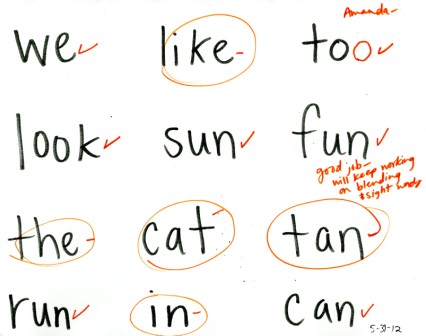 Amanda-
we like too
look sun fun
good job-
will keep working
on blending
& sight words
the cat tan
run in can
5-31-12